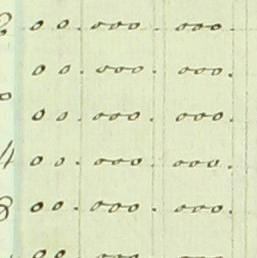 00.000.000.
00.000.000.
00.000.000.
4 00.000.000.
8 00.000.000.